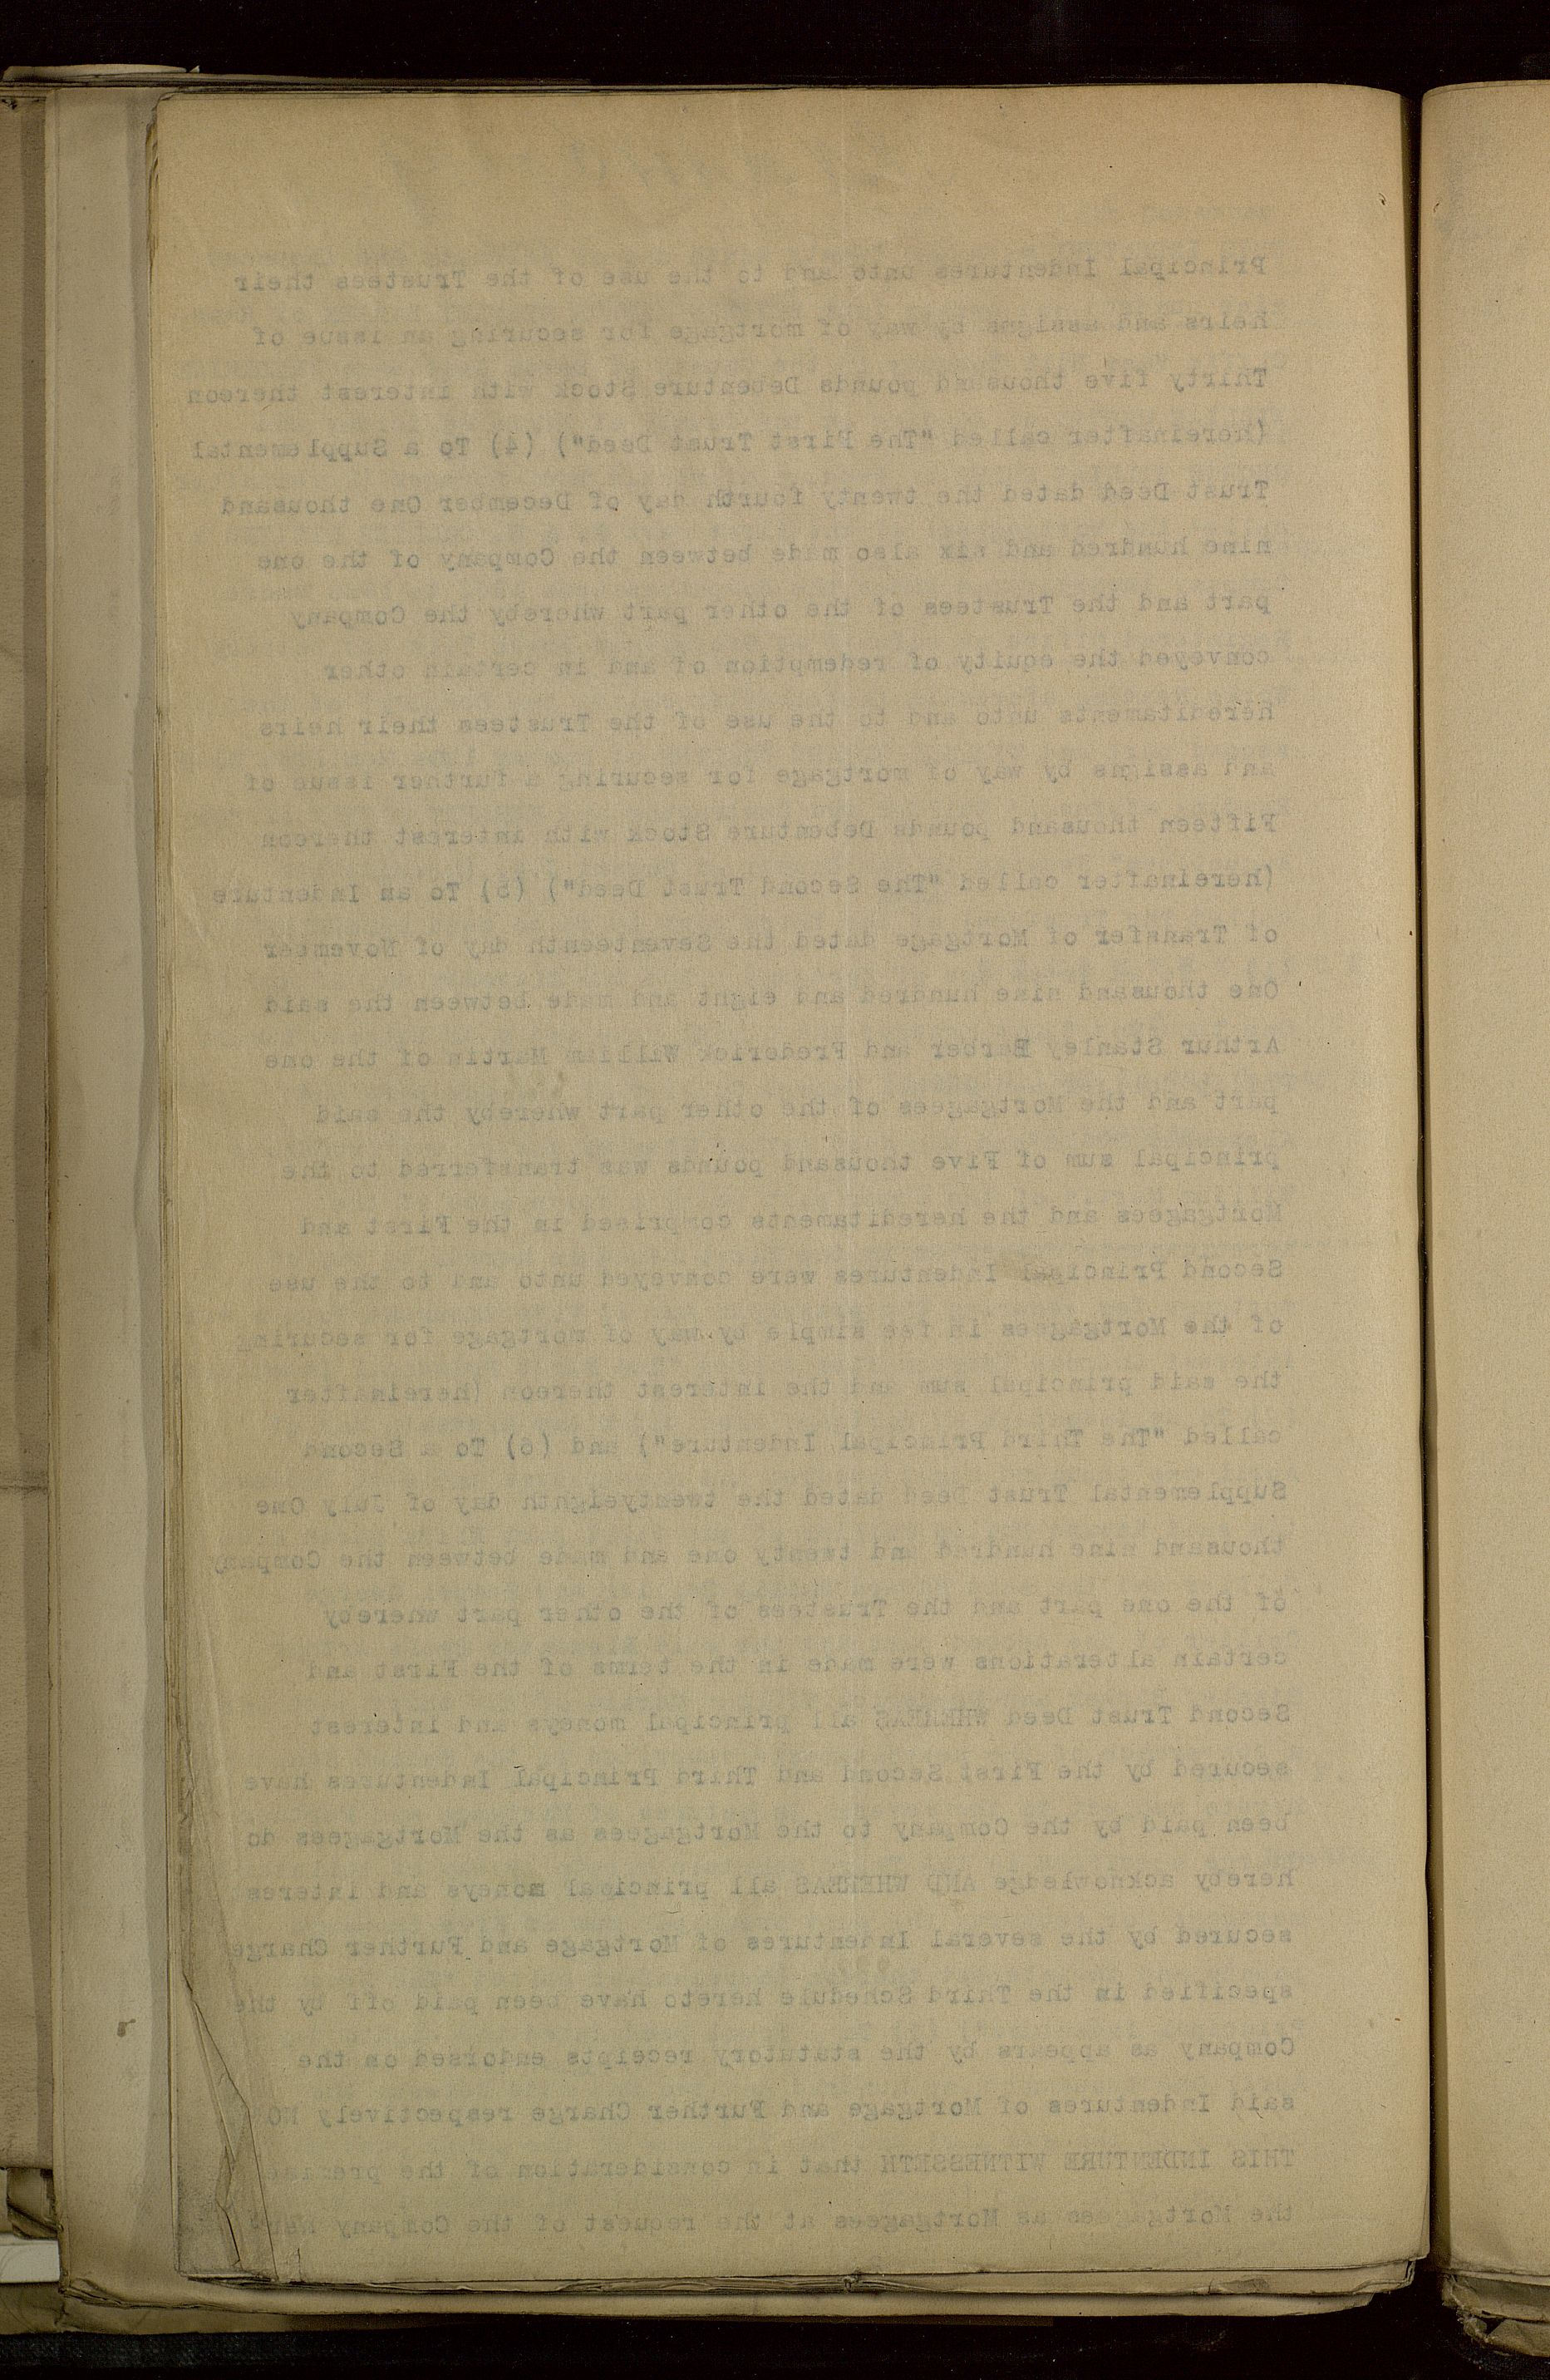 Principal Indentures unto and to the use of the Trustees their
heirs and assigns by way of mortgage for securing an issue of
Thirty five thousand pounds Debenture Stock with interest thereon
(hereinafter called "The First Trust Deed") (4) To a Supplemental
Trust Deed dated the twenty fourth day of December One thousand
nine hundred and six also made between the Company of the one
part and the Trustees of the other part whereby the Company
conveyed the equity of redemption of and in certain other
hereditaments unto and to the use of the Trustees their heirs
and assigns by way of mortgage for securing a further issue of
Fifteen thousand pounds Debenture Stock with interest thereon
(hereinafter called "The Second Trust Deed") (5) To an Indenture
of Transfer of Mortgage dated the Seventeenth day of November
One thousand nine hundred and eight and made between the said
Arthur Stanley Barber and Frederick William Martin of the one
part and the Mortgagees of the other part whereby the said
principal sum of Five thousand pounds was transferred to the
Mortgagees and the hereditaments comprised in the First and
Second Principal Indentures were conveyed unto and to the use
of the Mortgagees in fee simple by way of mortgage for securing
the said principal sum and the interest thereon (hereinafter
called "The Third Principal Indenture") and (6) To a Second
Supplemental Trust Deed dated the twentyeighth day of July One
thousand nine hundred and twenty one and made between the Company
of the one part and the Trustees of the other part whereby
certain alterations were made in the terms of the First and
Second Trust Deed WHEREAS all principal moneys and interest
secured by the First Second and Third Principal Indentures have
been paid by the Company to the Mortgagees as the Mortgagees do
hereby acknowledge AND WHEREAS all principal moneys and interes
secured by the several Indentures of Mortgage and Further Charge
specified in the Third Schedule hereto have been paid off by the
Company as appears by the statutory receipts endorsed on the
said Indentures of Mortgage and Further Charge respectively NO
THIS INDENTURE WITNESSETH that in consideration of the premise
the Mortgagees as Mortgagees at the request of the Company